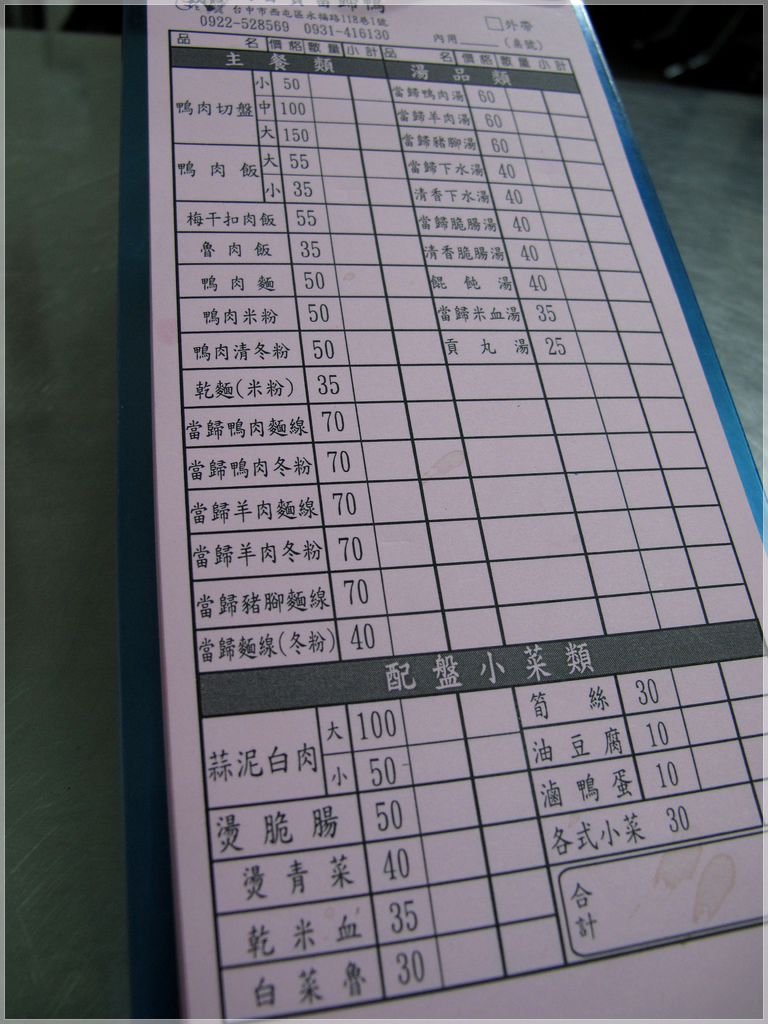 當歸鴨
台中市西屯區永福路118巷1號
0922-528569 0931-416130
□外帶
內用____(桌號)
品名 價格 數量 小計 品名 價格 數量 小計
主餐類 湯品類
鴨肉切盤 小 50 當歸鴨肉湯 60
中 100 當歸羊肉湯 60
大 150 當歸豬腳湯 60
鴨肉飯 大 55 當歸下水湯 40
小 35 清香下水湯 40
梅干扣肉飯 55 當歸脆腸湯 40
魯肉飯 35 清香脆腸湯 40
鴨肉麵 50 餛飩湯 40
鴨肉米粉 50 當歸米血湯 35
鴨肉清冬粉 50 貢丸湯 25
乾麵(米粉) 35
當歸鴨肉麵線 70
當歸鴨肉冬粉 70
當歸羊肉麵線 70
當歸羊肉冬粉 70
當歸豬腳麵線 70
當歸麵線(冬粉) 40
配盤小菜類
蒜泥白肉 大 100 筍絲 30
小 50 油豆腐 10
燙脆腸 50 滷鴨蛋 10
燙青菜 40 各式小菜 30
乾米血 35 合計
白菜魯 30